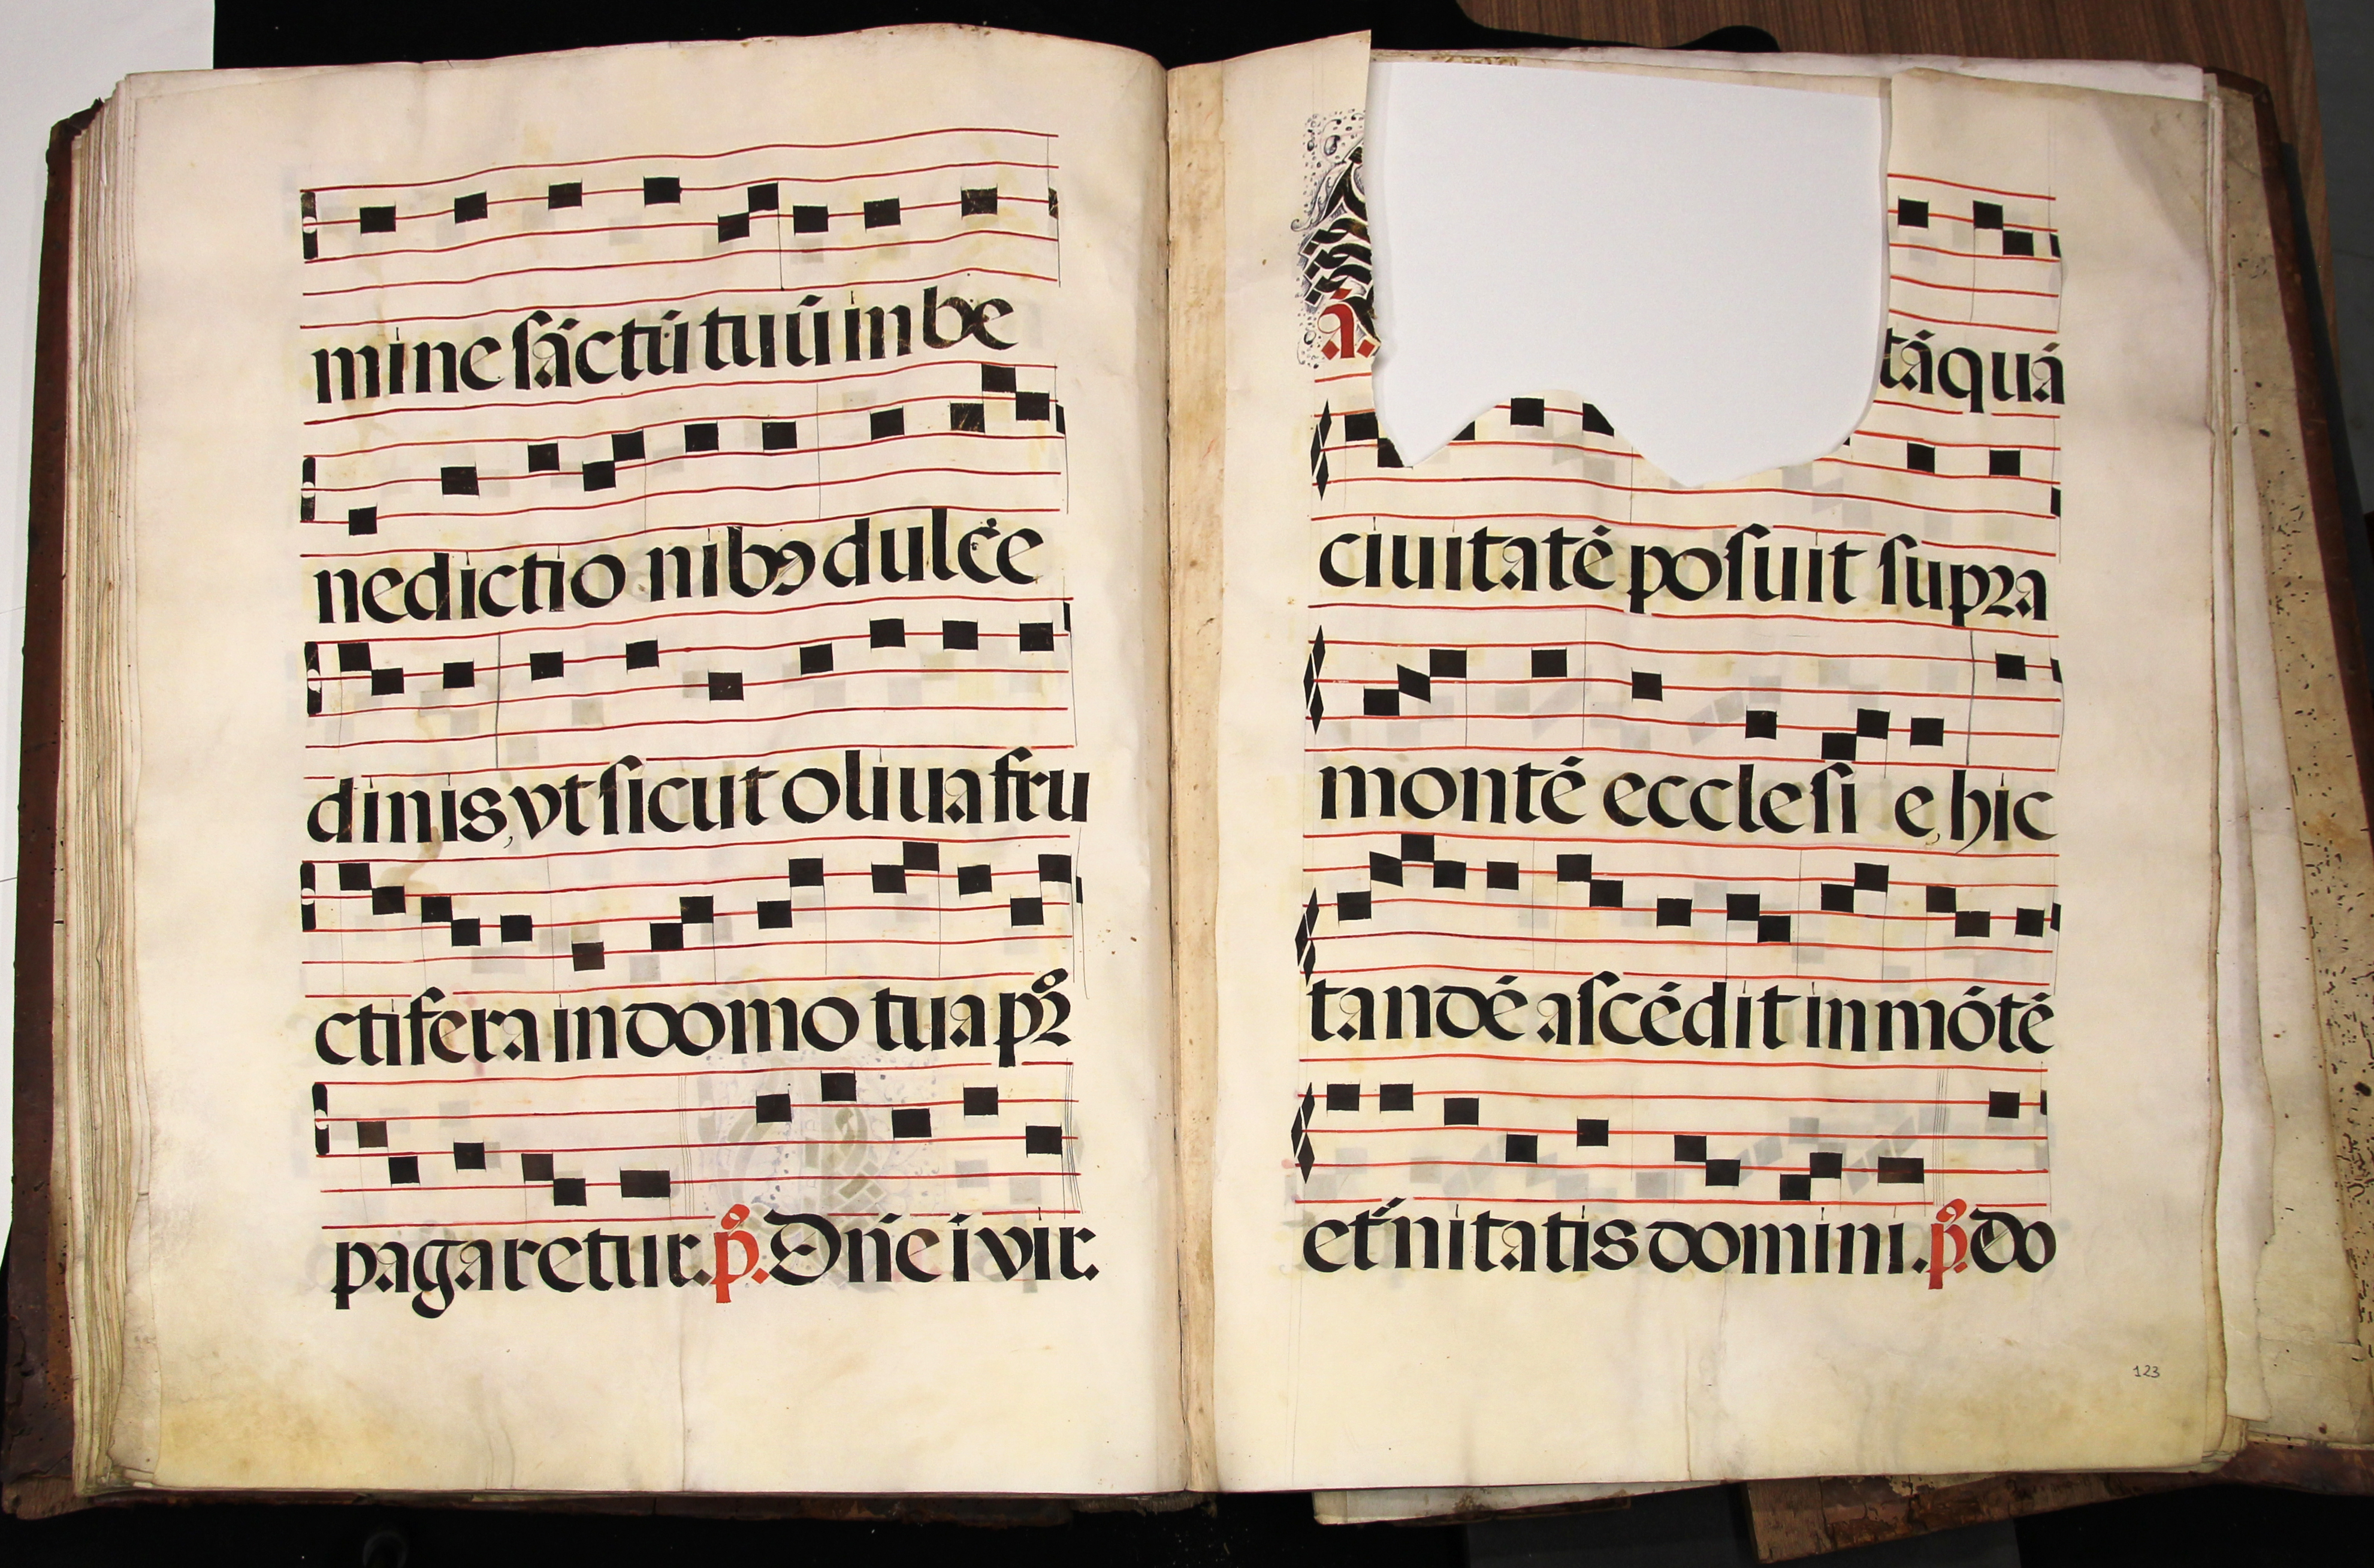 mine sāctū tuū in be
nedictio nibꝯ dulce
dinis, vt sicut oliua fru
ctifera in domo tua pꝛ
pagaretur. p̄. Dn̄e i vir.
ā.
tāquā
ciuitatē posuit supꝛa
montē ecclesi e, hic
tandē ascēdit in mōtē
et̄nitatis domini. p̄. Do
123